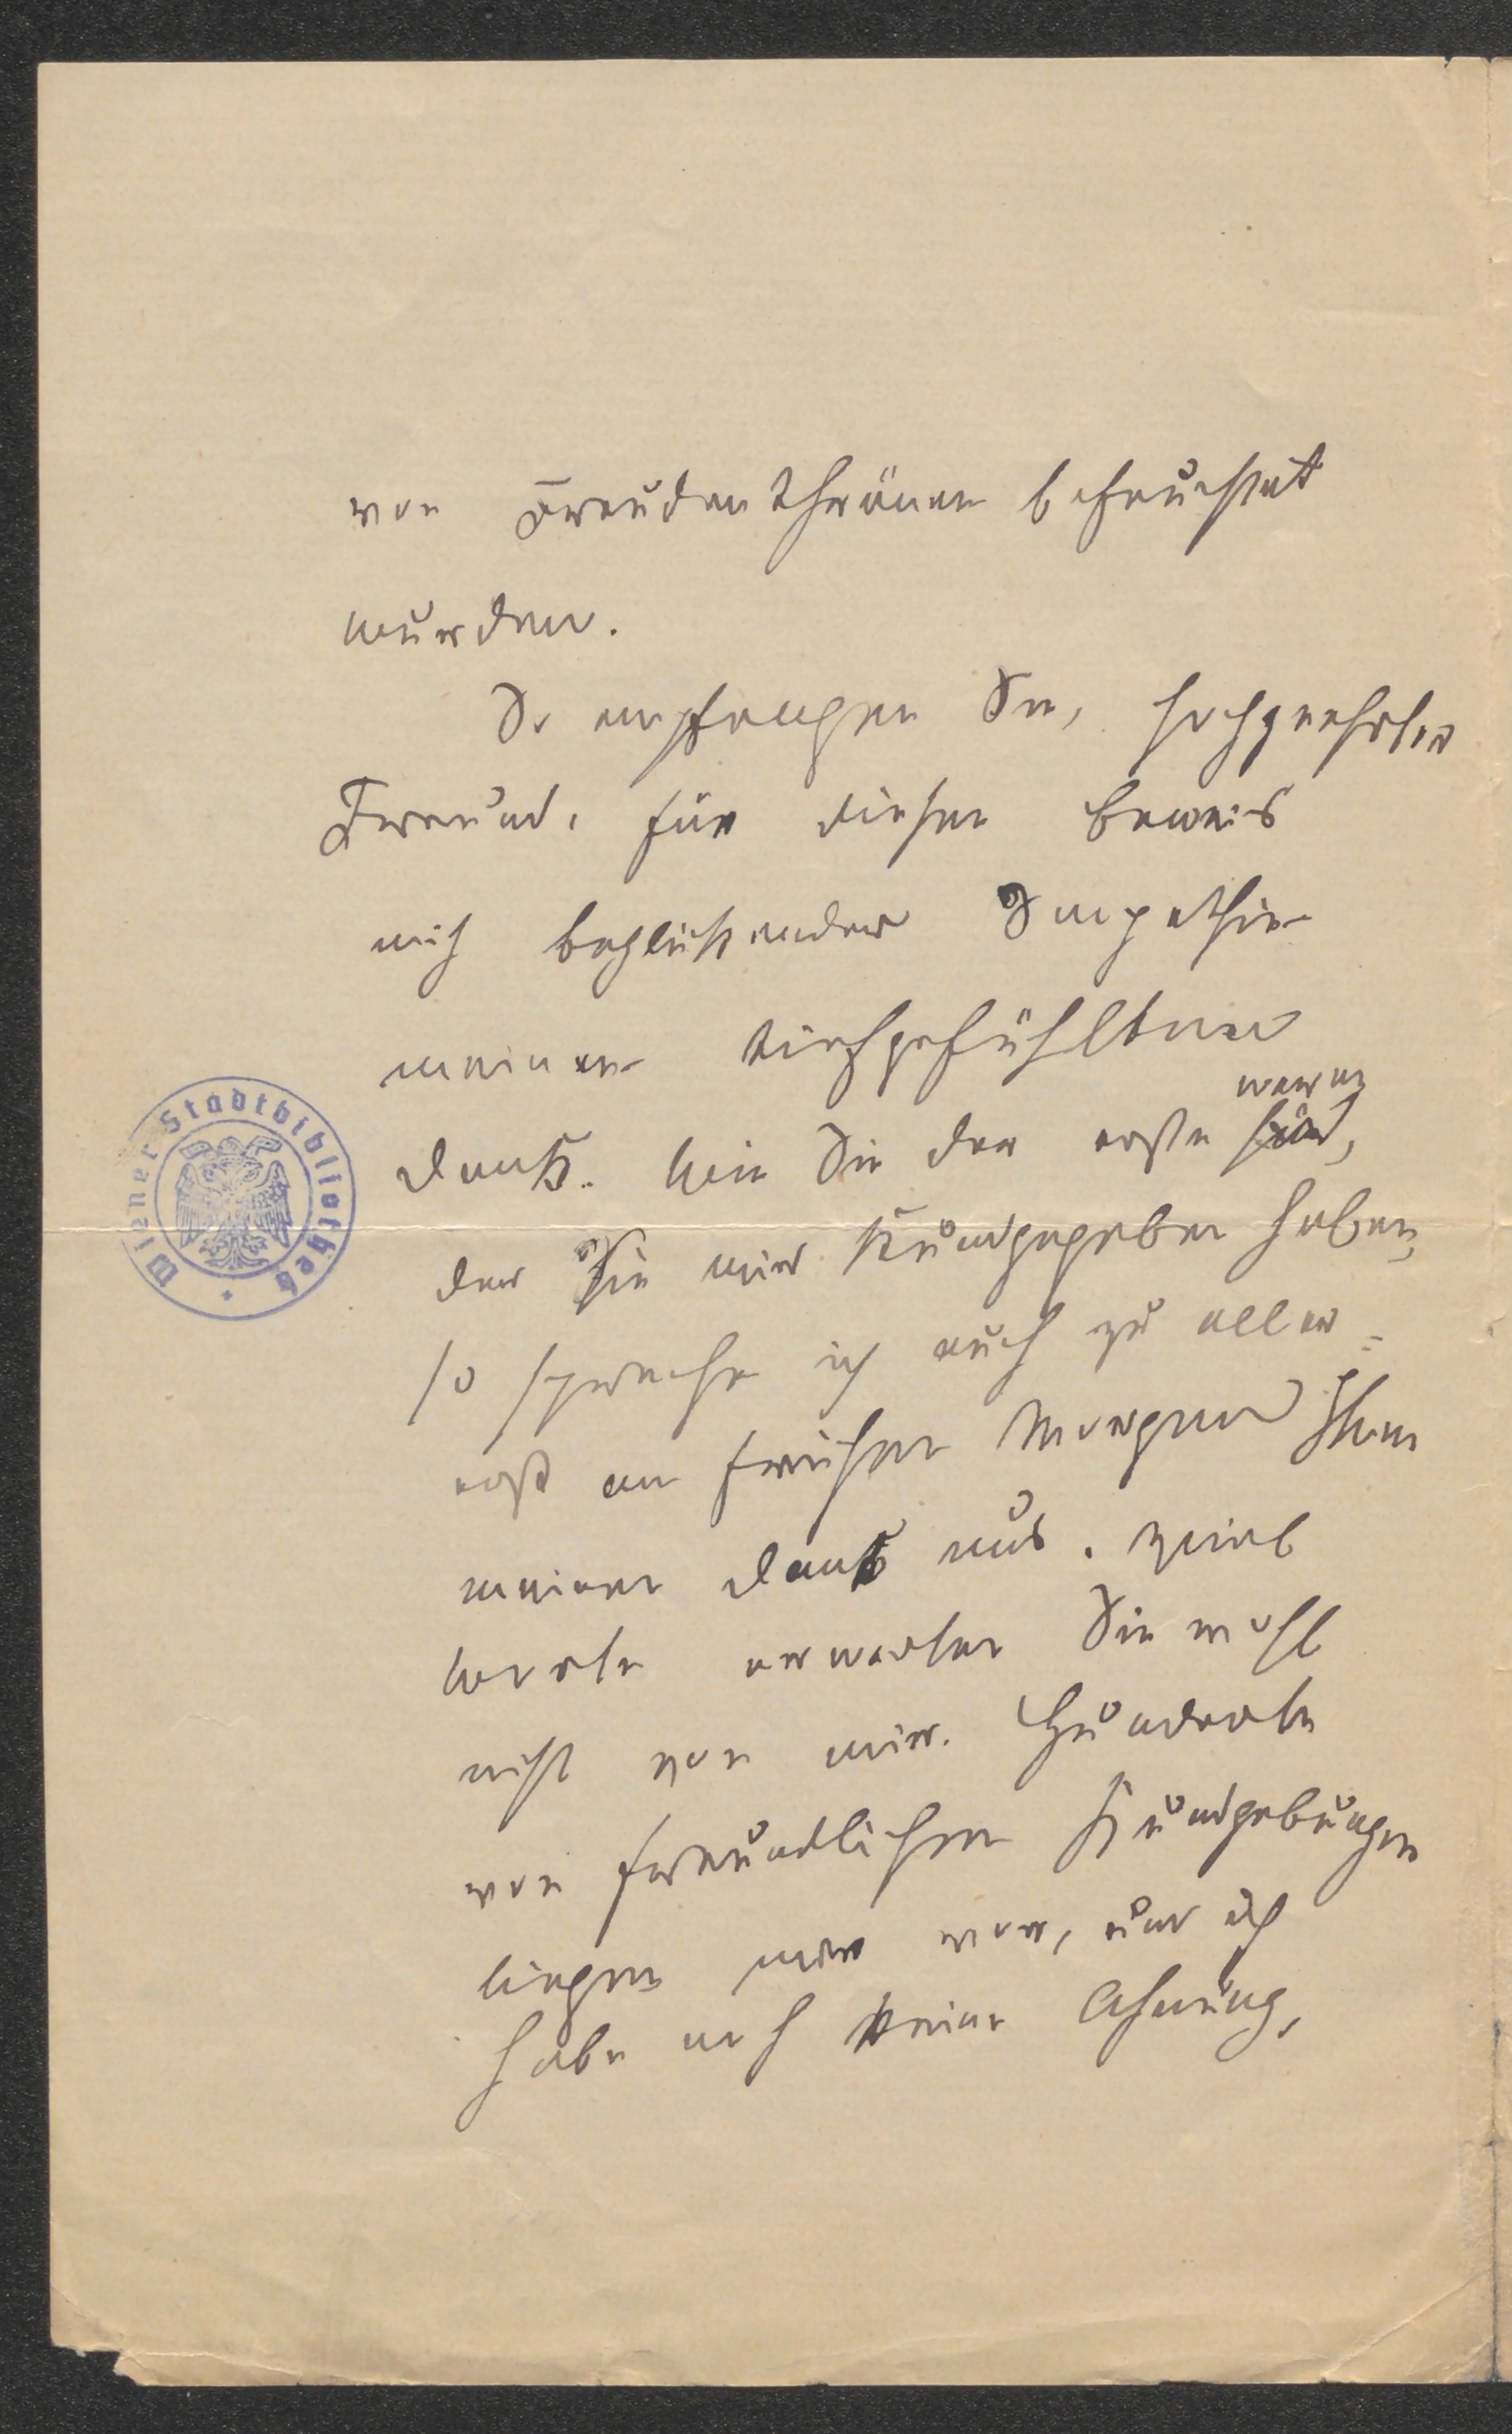 von Freudenthränen befeuchtet
wurden.
So empfangen Sie, hochgeehrter
Freund, für diesen Beweis
mich beglückender Simpathie
meinen tiefgefühlten
Dank. Wie Sie der erste waren
sind,
der sie mir kundgegeben haben,
so spreche ich auch zu aller-
erst am frühen Morgen Ihnen
meinen Dank aus. Viel
Worte erwarten Sie wohl
nicht von mir. Hunderte
von freundlichen Kundgebungen
liegen mir vor, und ich
habe noch keine Ahnung,
Wiener Stadtbibliothek